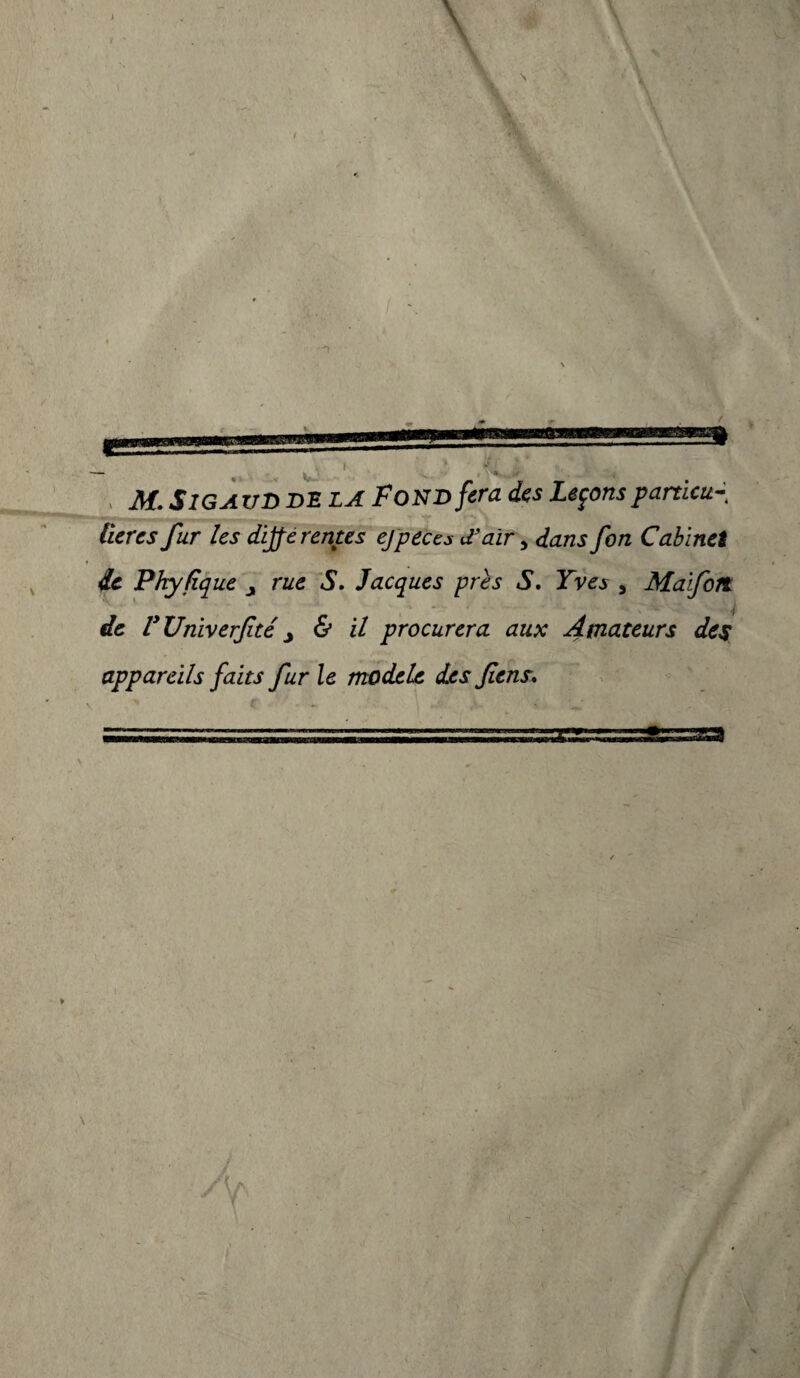 M. SIGAUD DE LA FOND fera des Leçons particu-
lieres ſur les différentes eſpeces d'air, dans ſon Cabinet
de Phyſique, rue S. Jacques près S. Yves, Maiſon
de l'Univerſité, & il procurera aux Amateurs des
appareils faits ſur le modele des ſiens.